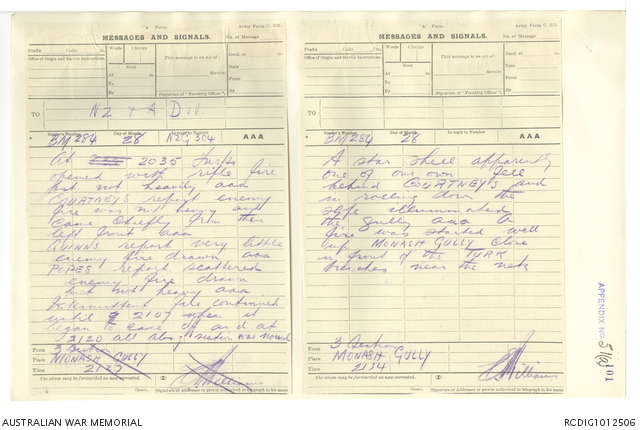 "A" Form.
Army Form C. 2121
MESSAGES AND SIGNALS.
No. of Message
Prefix Code m.
Office of Origin and Service Instructions.
Words Charge
Sent
At m.
To
By
This message is on a/c of:
Service.
(Signature of "Franking Officer")
Recd. at m.
Date
From
By
TO
NZ & A DIV
Sender's Number
Day of Month
In reply to Number
AAA
BM 284 28 NZG 304
At 2035 Turks
opened with rifle fire
but not heavily aaa
COURTNEYS report enemy
fire was not heavy and
came chiefly from their
left front aaa
QUINNS report very little
enemy fire drawn aaa
POPES report scattered
enemy fire drawn
but not heavy aaa
Intermittent fire continued
until 2107 when it
began to ease off and at
2120 all along section was normal
From 3 Section
Place MONASH GULLY
Time 2137
The above may be forwarded as now corrected. (Z)
Williams
"A" Form.
Army Form C. 2121
MESSAGES AND SIGNALS.
No. of Message
Prefix Code m.
Office of Origin and Service Instructions.
Words Charge
Sent
At m.
To
By
This message is on a/c of:
Service.
(Signature of "Franking Officer")
Recd. at m.
Date
From
By
TO
Sender's Number
Day of Month
In reply to Number
AAA
BM 284 28
A star shell apparently
one of our own fell
behind COURTNEY'S and
in rolling down the
slope illuminated
the gully aaa A
fire was started well
up MONASH GULLY close
in front of the TURK
trenches near the nek
From 3 Section
Place MONASH GULLY
Time 2134
The above may be forwarded as now corrected. (Z)
Williams
APPENDIX NO.
101
AUSTRALIAN WAR MEMORIAL
RCDIG1012506